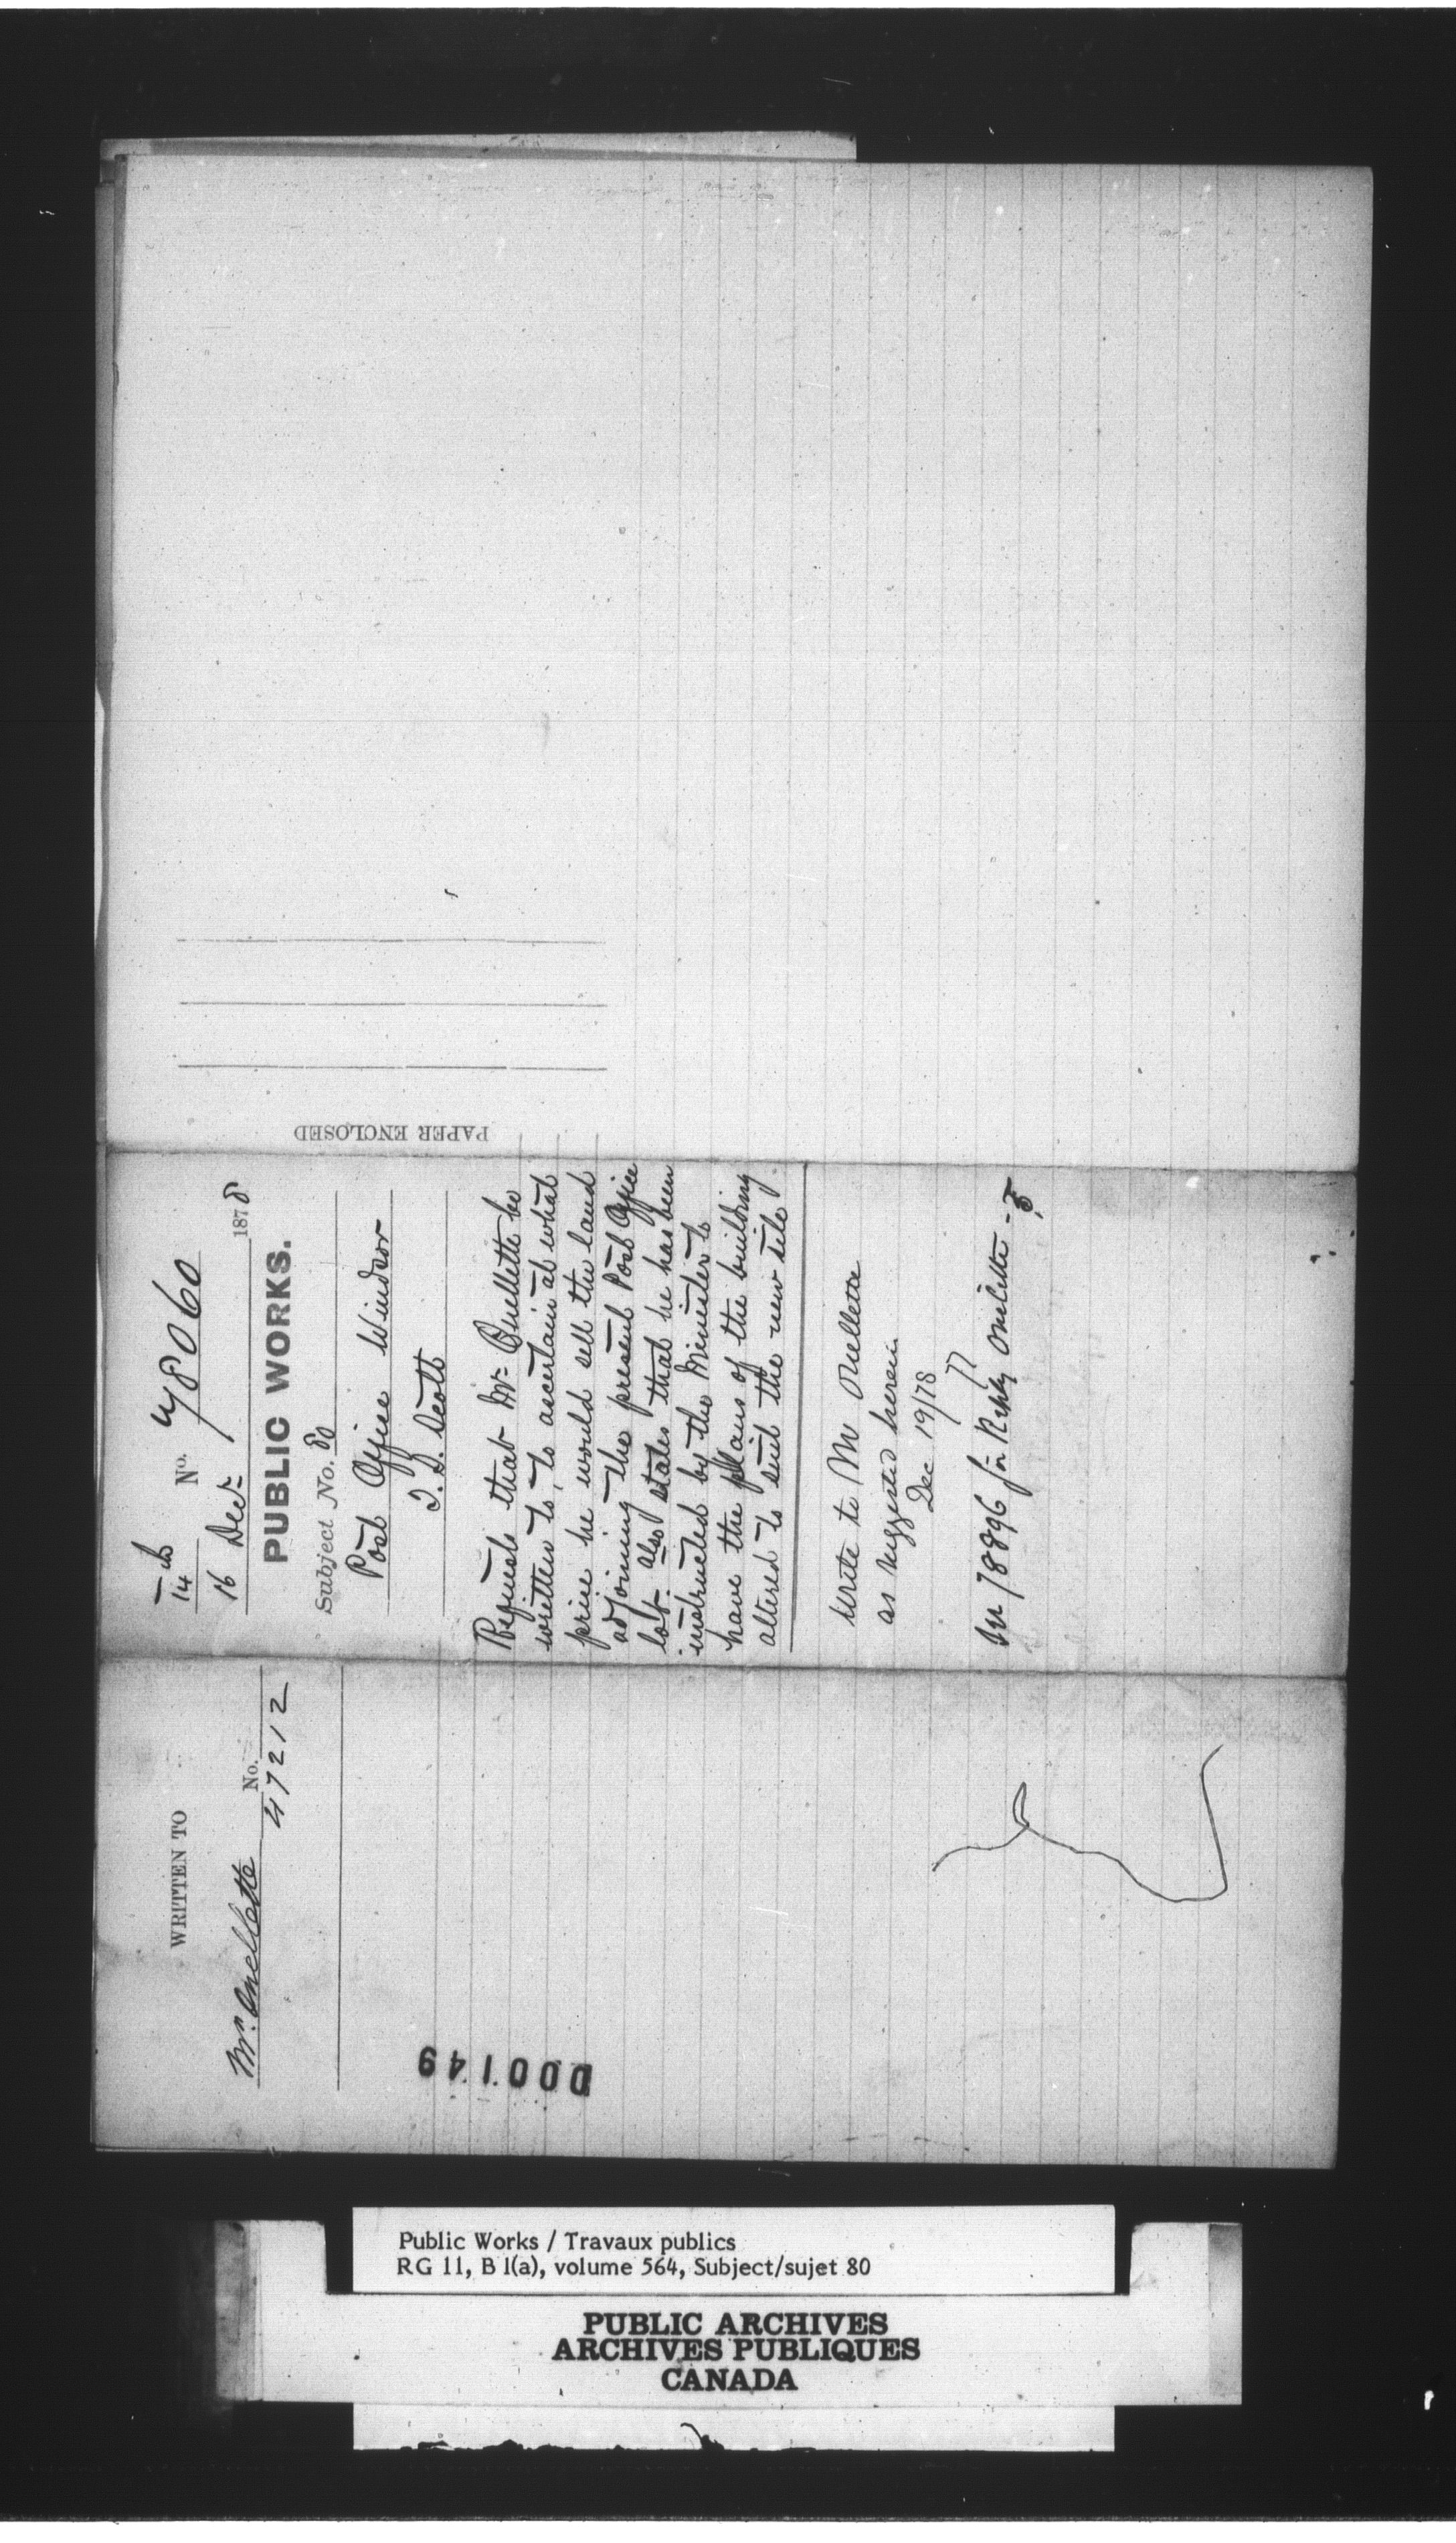 WRITTEN TO
No.
Mr. Ouellette 47212
14th No. 78060
16 Decr. 1878
PUBLIC WORKS.
Subject No. 80
Post Office Windsor
T. S. Scott
Requests that Mr. Ouellette be
written to, to ascertain at what
price he would sell the land
adjoining the present Post Office
lot. also states that he has been
instructed by the Minister to
have the plans of the building
altered to suit the new site
Write to Mr Ouellette
as suggested herein
Dec 19/78
78896 for Reply Ouellette
PAPER ENCLOSED
D00149
Public Works / Travaux publics
RG 11, B 1(a), volume 564, Subject/sujet 80
PUBLIC ARCHIVES
ARCHIVES PUBLIQUES
CANADA